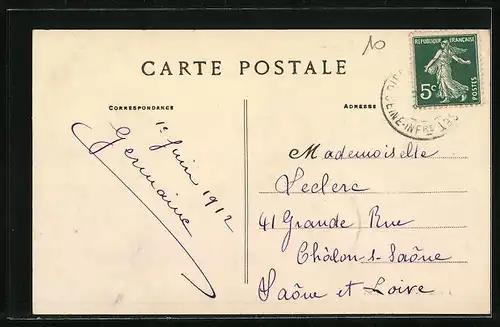 10
RÉPUBLIQUE FRANÇAISE
5c
POSTES
SEINE-INFRE
CARTE POSTALE
CORRESPONDANCE
ADRESSE
1e Juin 1912
Germaine
Mademoiselle
Leclerc
41 Grande Rue
Châlon-s-Saône
Saône et Loire